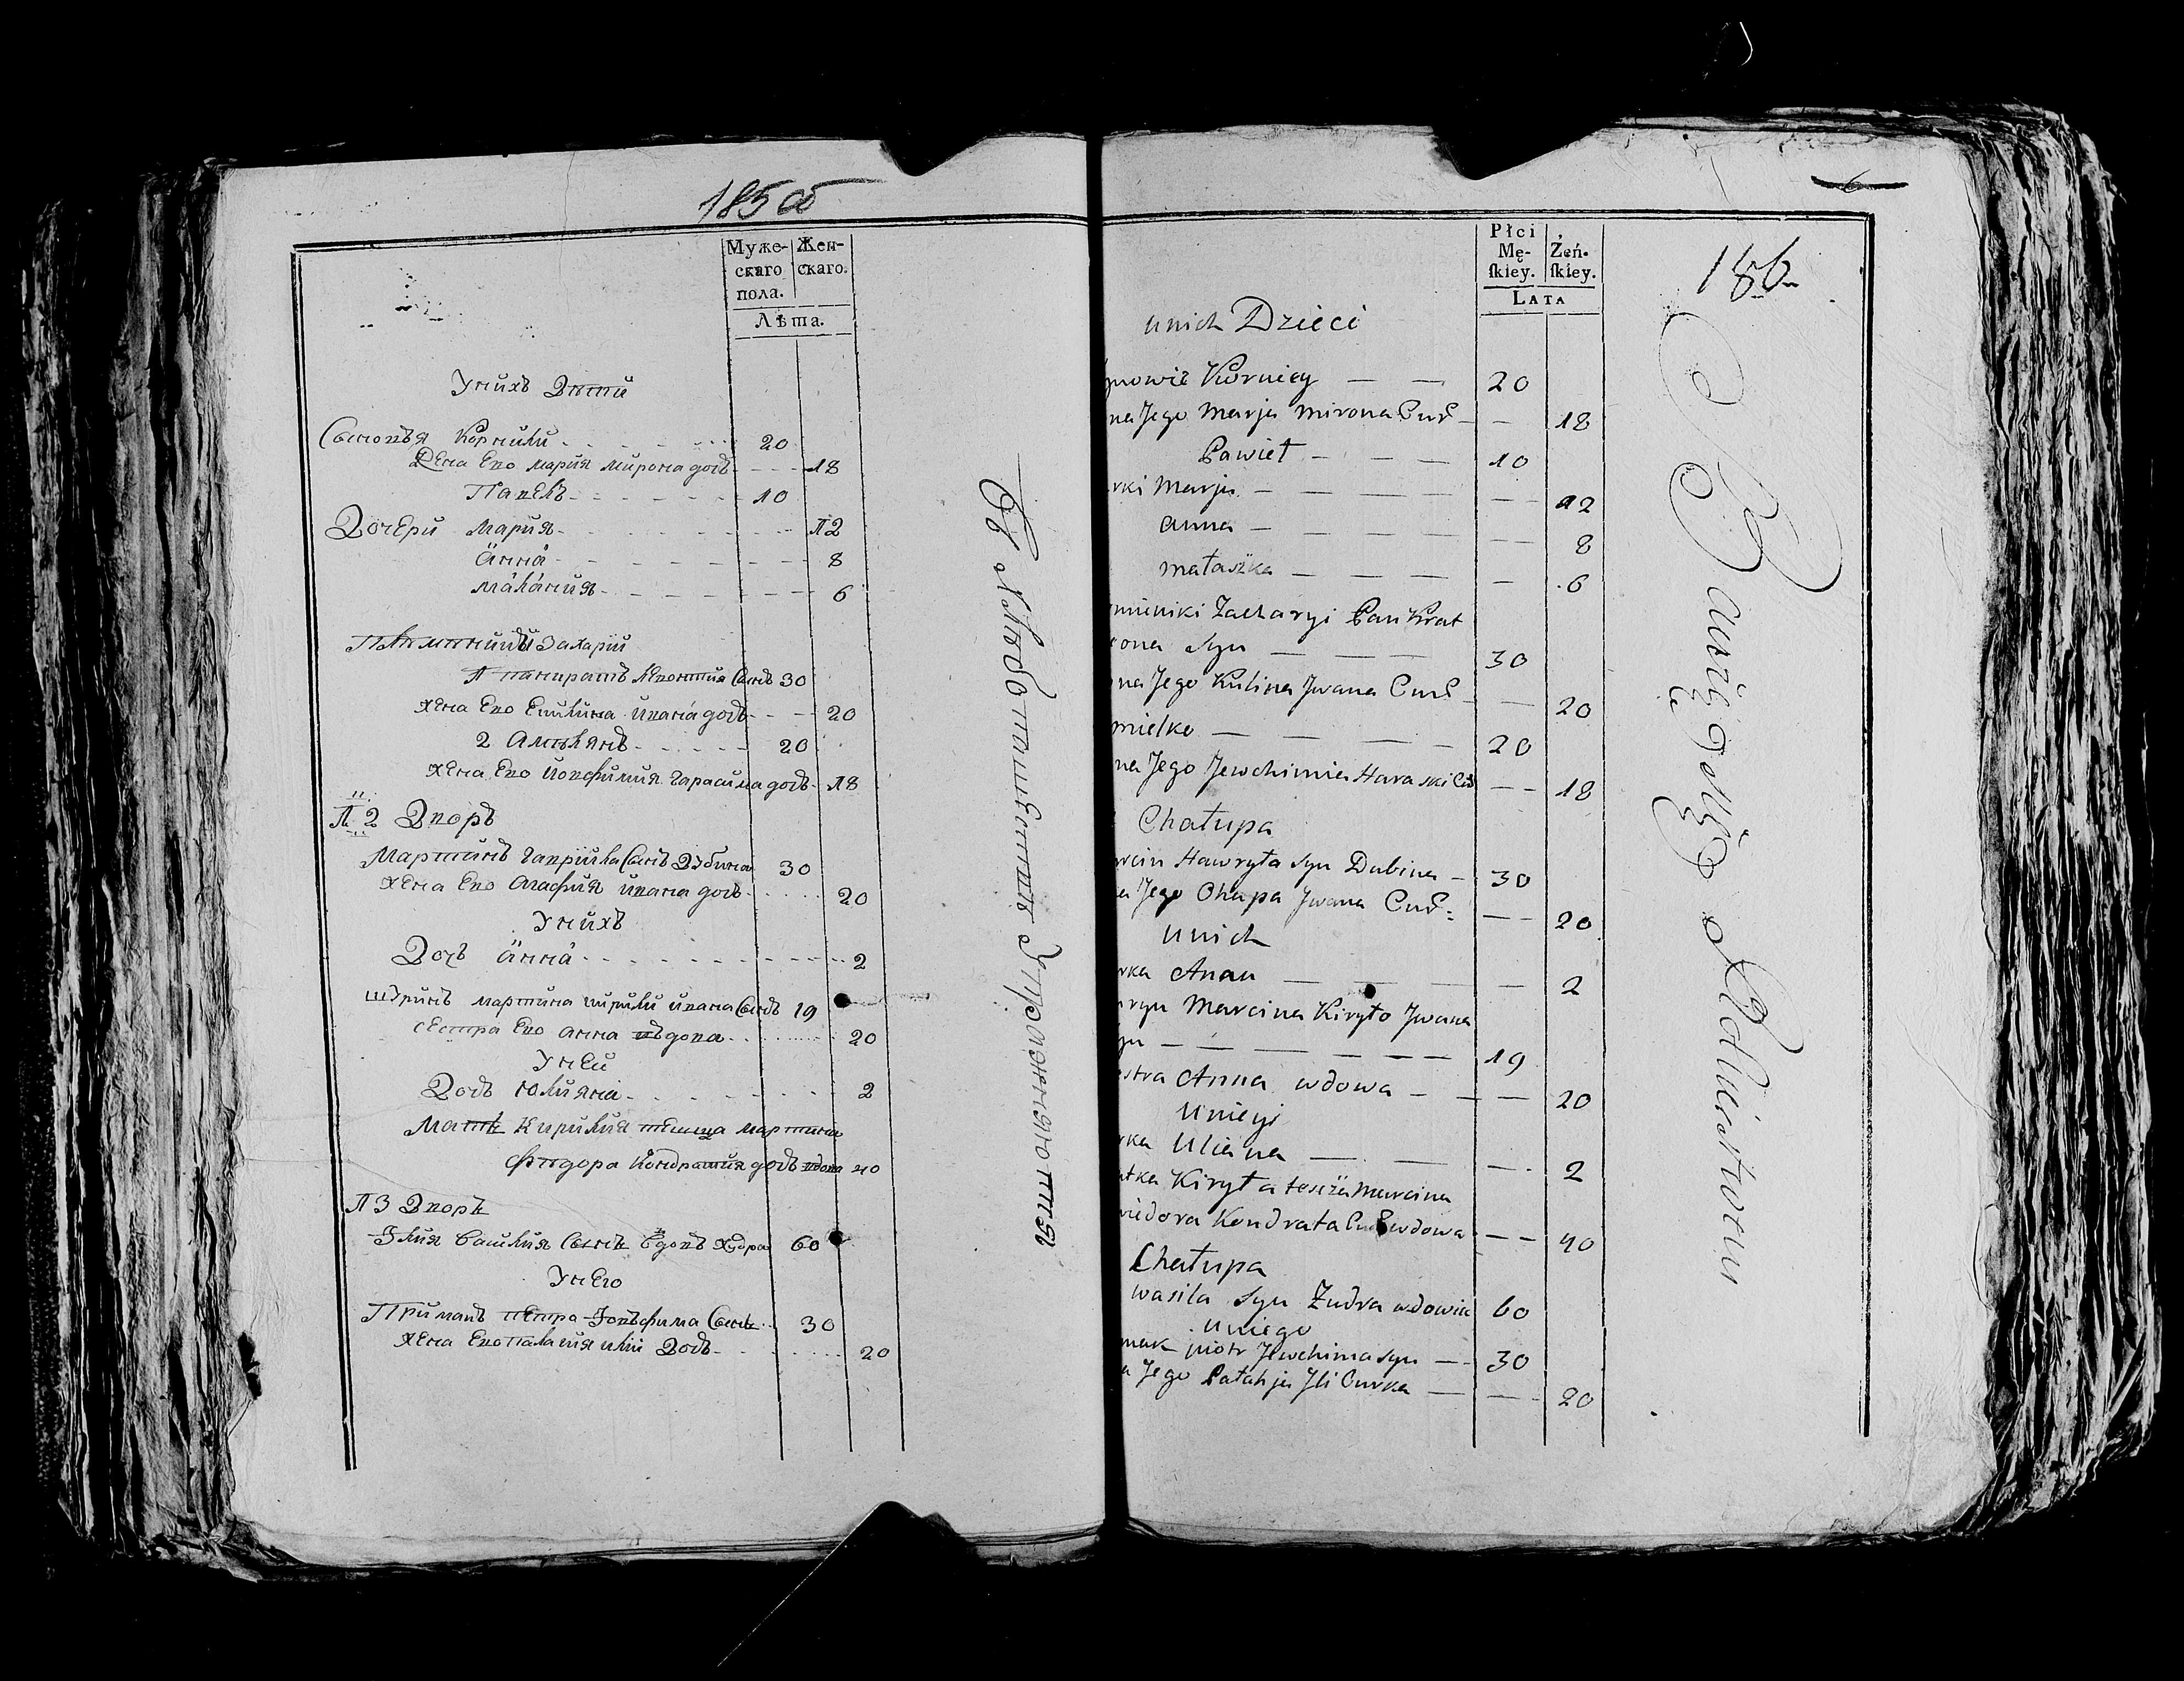 185 об
Муже-
скаго
пола.
Жен-
скаго.
Лѣта.
Унихъ Дѣти
Сыновья Корнили 20
Жена Его Мария Мирона дочь 18
Павелъ 10
Дочери Мария 12
Анна 8
Малания 6
Племянники Захарий
Панкратъ Леонтия Сынъ 30
Жена Его Ивана дочь 20
2 Амельянъ 20
Жена Его Гарасима дочь 18
12 Дворъ
Мартинъ Гаврила Сынъ Дубина 30
Жена Его Агафия Ивана дочь 20
Унихъ
Дочь Анна 2
Шуринъ Мартина Кирили Ивана Сынъ 19
Сестра Его Анна вдова 20
Уней
Дочь Юлияна 2
Мать Кирилия теща Мартина
Федора Кондратия дочь вдова 40
13 Дворъ
Илия Василия Сынъ вдовъ 60
Унего
Примакъ Петра Сынъ 30
Жена Его Палагия Или Дочь 20
6
186
Płci
Mę-
skiey.
Żeń-
skiey.
Lata
unich Dzieci
ynowie Korniey 20
na Jego Marja Mirona Cur 18
Paweł 10
rki Marja 12
Anna 8
małaszka 6
mieniki Zacharyi Pankrat
ona Syn 30
na Jego Kulina Jwana Cur 20
mielko 20
na Jego Jewchimia Haraski 18
Chałupa
rcin Hawryła Syn Dubina 30
a Jego Ohapa Jwana Cur 20
unich
rka Anau 2
uryn Marcina Kiryło Jwana
yn 19
ostra Anna wdowa 20
Unieyi
rka Uliana 2
atka Kiryła teszia Marcina
iedora Kondrata Cur wdowa 40
Chałupa
wasila Syn Zudra wdowiec 60
uniego
mak piotr Jewchima Syn 30
a Jego Pałahja Jli Curka 20